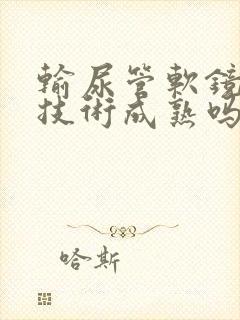 輸尿管軟鏡
技術成熟嗎
哈斯